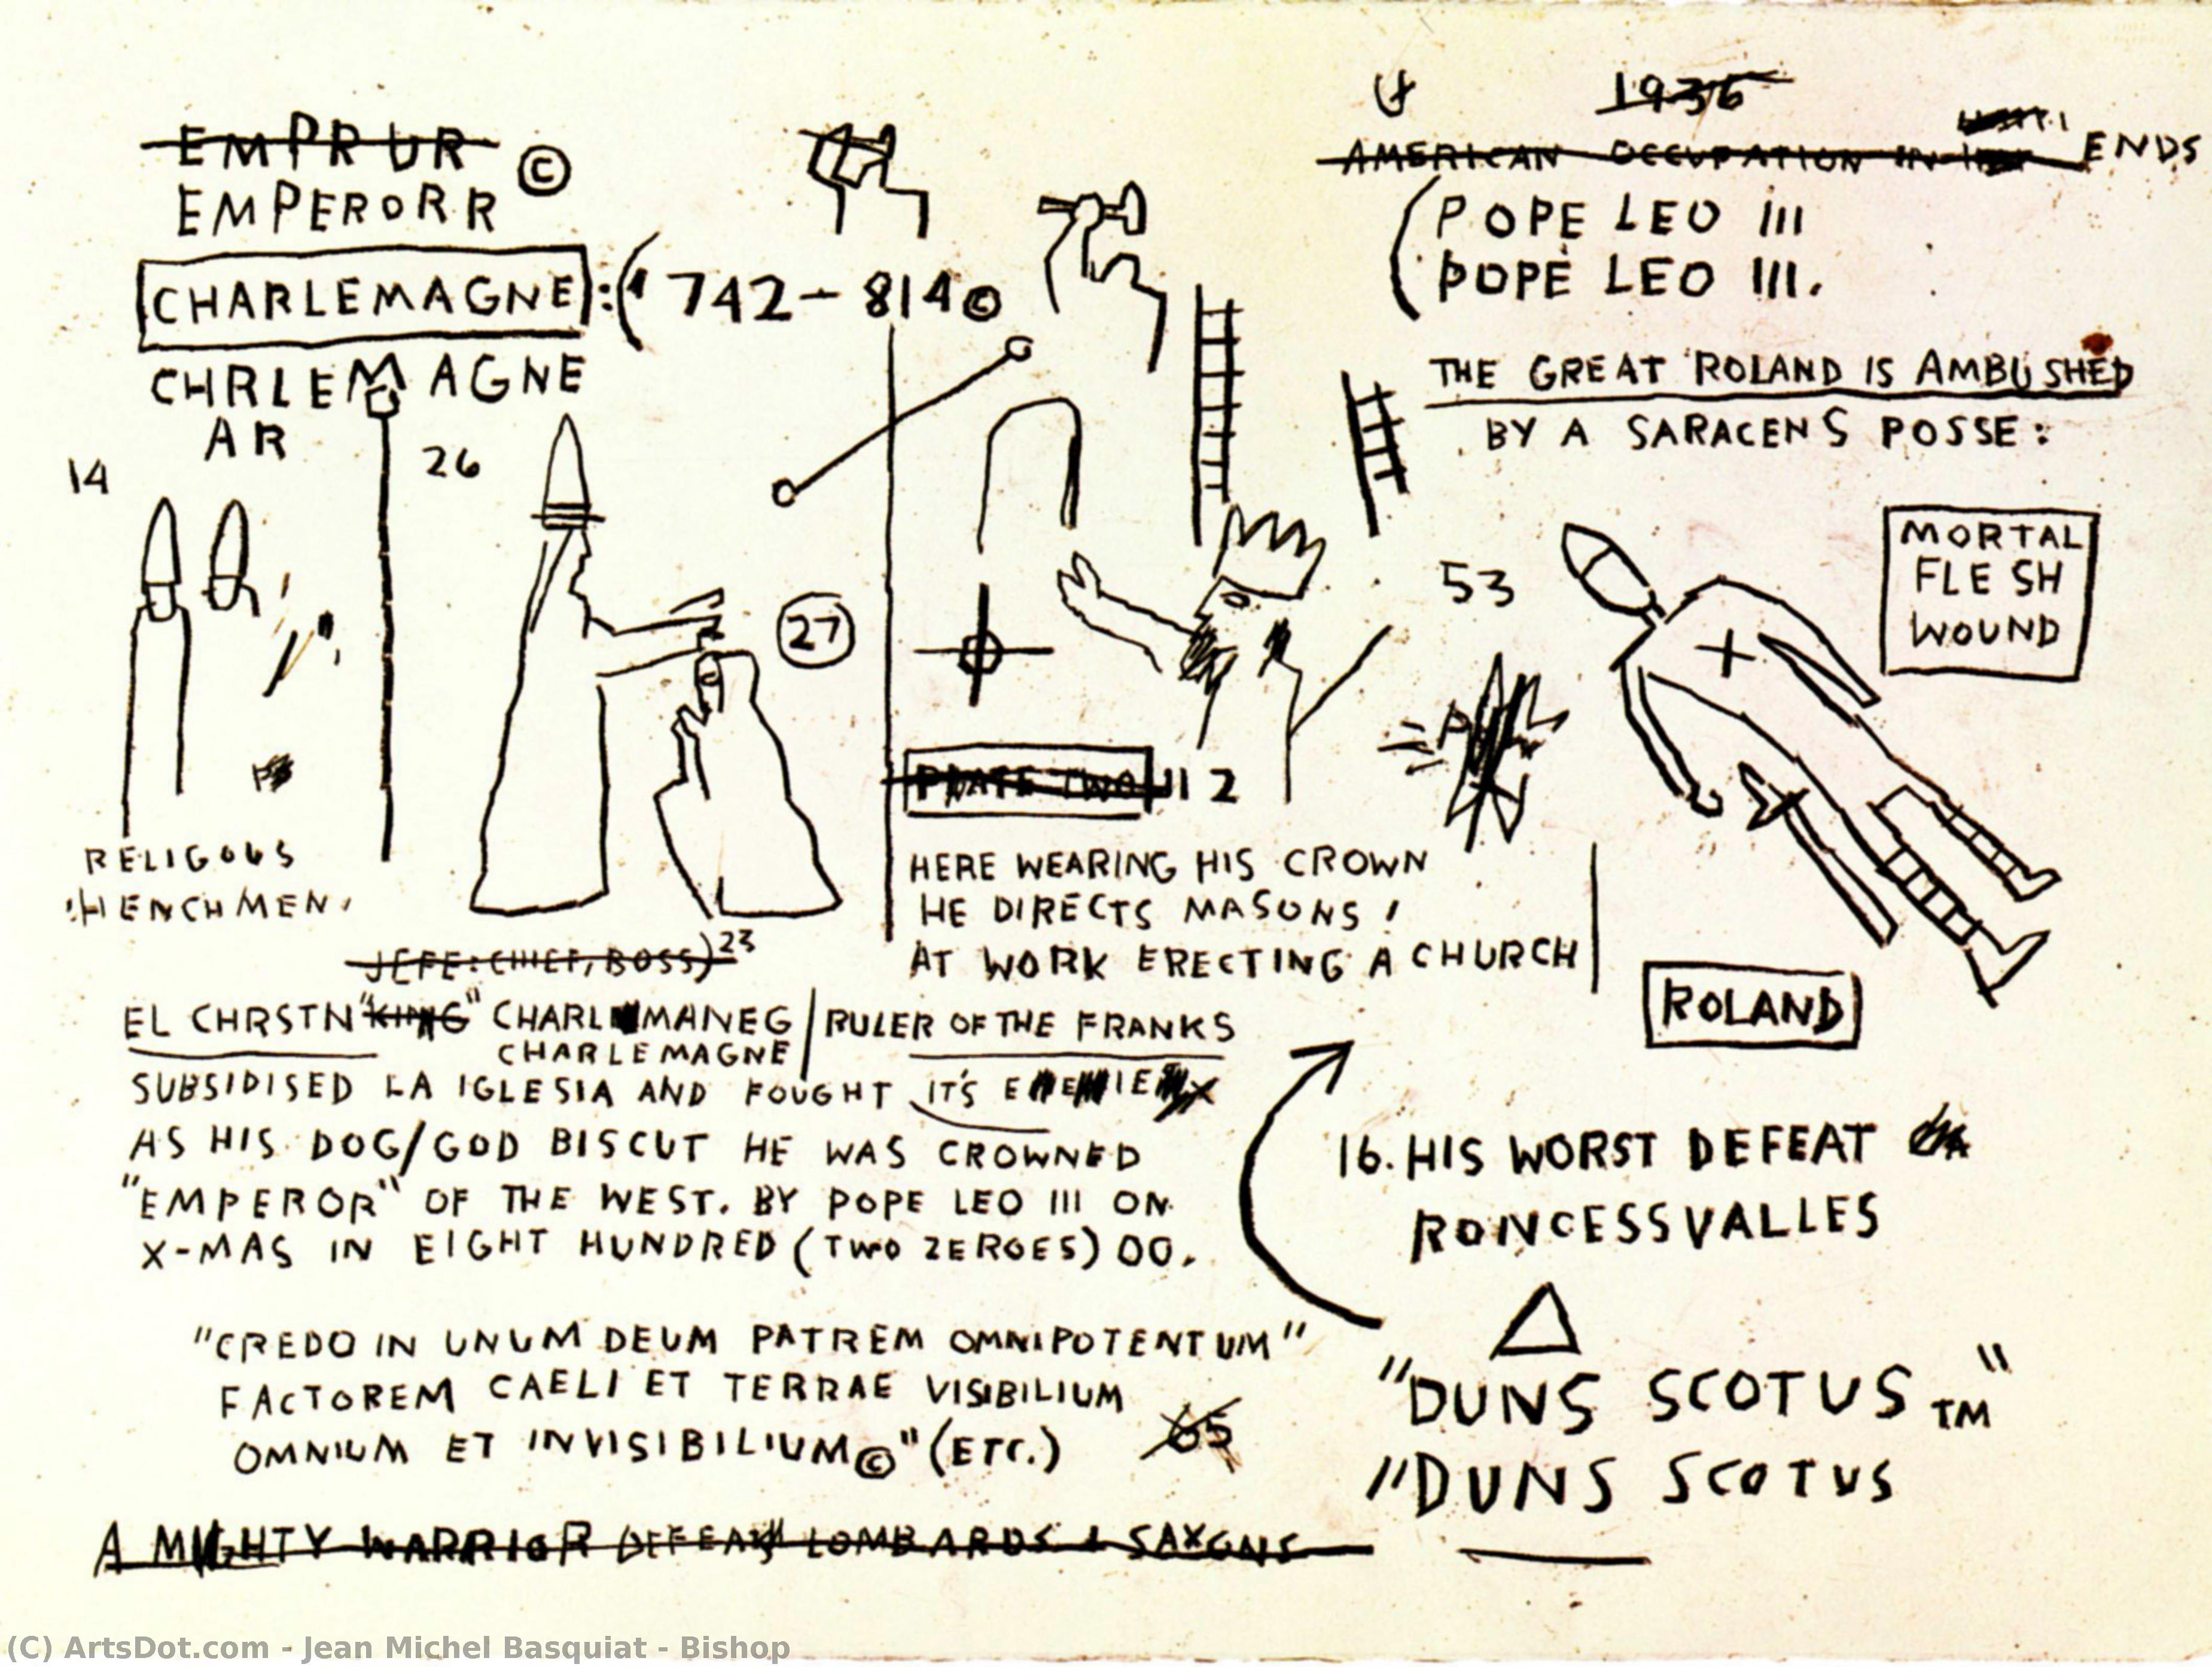 EMPRUR ©
EMPERORR
CHARLEMAGNE:( 742-814©
CHRLEMAGNE
AR
14
26
27
RELIGOUS
HENCHMEN.
JEFE: CHIEF, BOSS) 23
1936
AMERICAN OCCUPATION IN ENDS
(POPE LEO III
POPE LEO III.
THE GREAT ROLAND IS AMBUSHED
BY A SARACENS POSSE:
53
MORTAL
FLESH
WOUND
PLATE TWO II 2
HERE WEARING HIS CROWN
HE DIRECTS MASONS!
AT WORK ERECTING A CHURCH
ROLAND
EL CHRSTN "KING" CHARLMANEG / RULER OF THE FRANKS
CHARLEMAGNE
SUBSIDISED LA IGLESIA AND FOUGHT IT'S
AS HIS DOG/GOD BISCUT HE WAS CROWNED
"EMPEROR" OF THE WEST. BY POPE LEO III ON
X-MAS IN EIGHT HUNDRED (TWO ZEROES) 00.
16. HIS WORST DEFEAT
RONCESSVALLES
"CREDO IN UNUM DEUM PATREM OMNIPOTENTUM"
FACTOREM CAELI ET TERRAE VISIBILIUM
OMNIUM ET INVISIBILIUM©" (ETC.)
65
"DUNS SCOTUS TM"
"DUNS SCOTUS
A MIGHTY WARRIOR DEFEATS LOMBARDS & SAXONS
(C) ArtsDot.com - Jean Michel Basquiat - Bishop